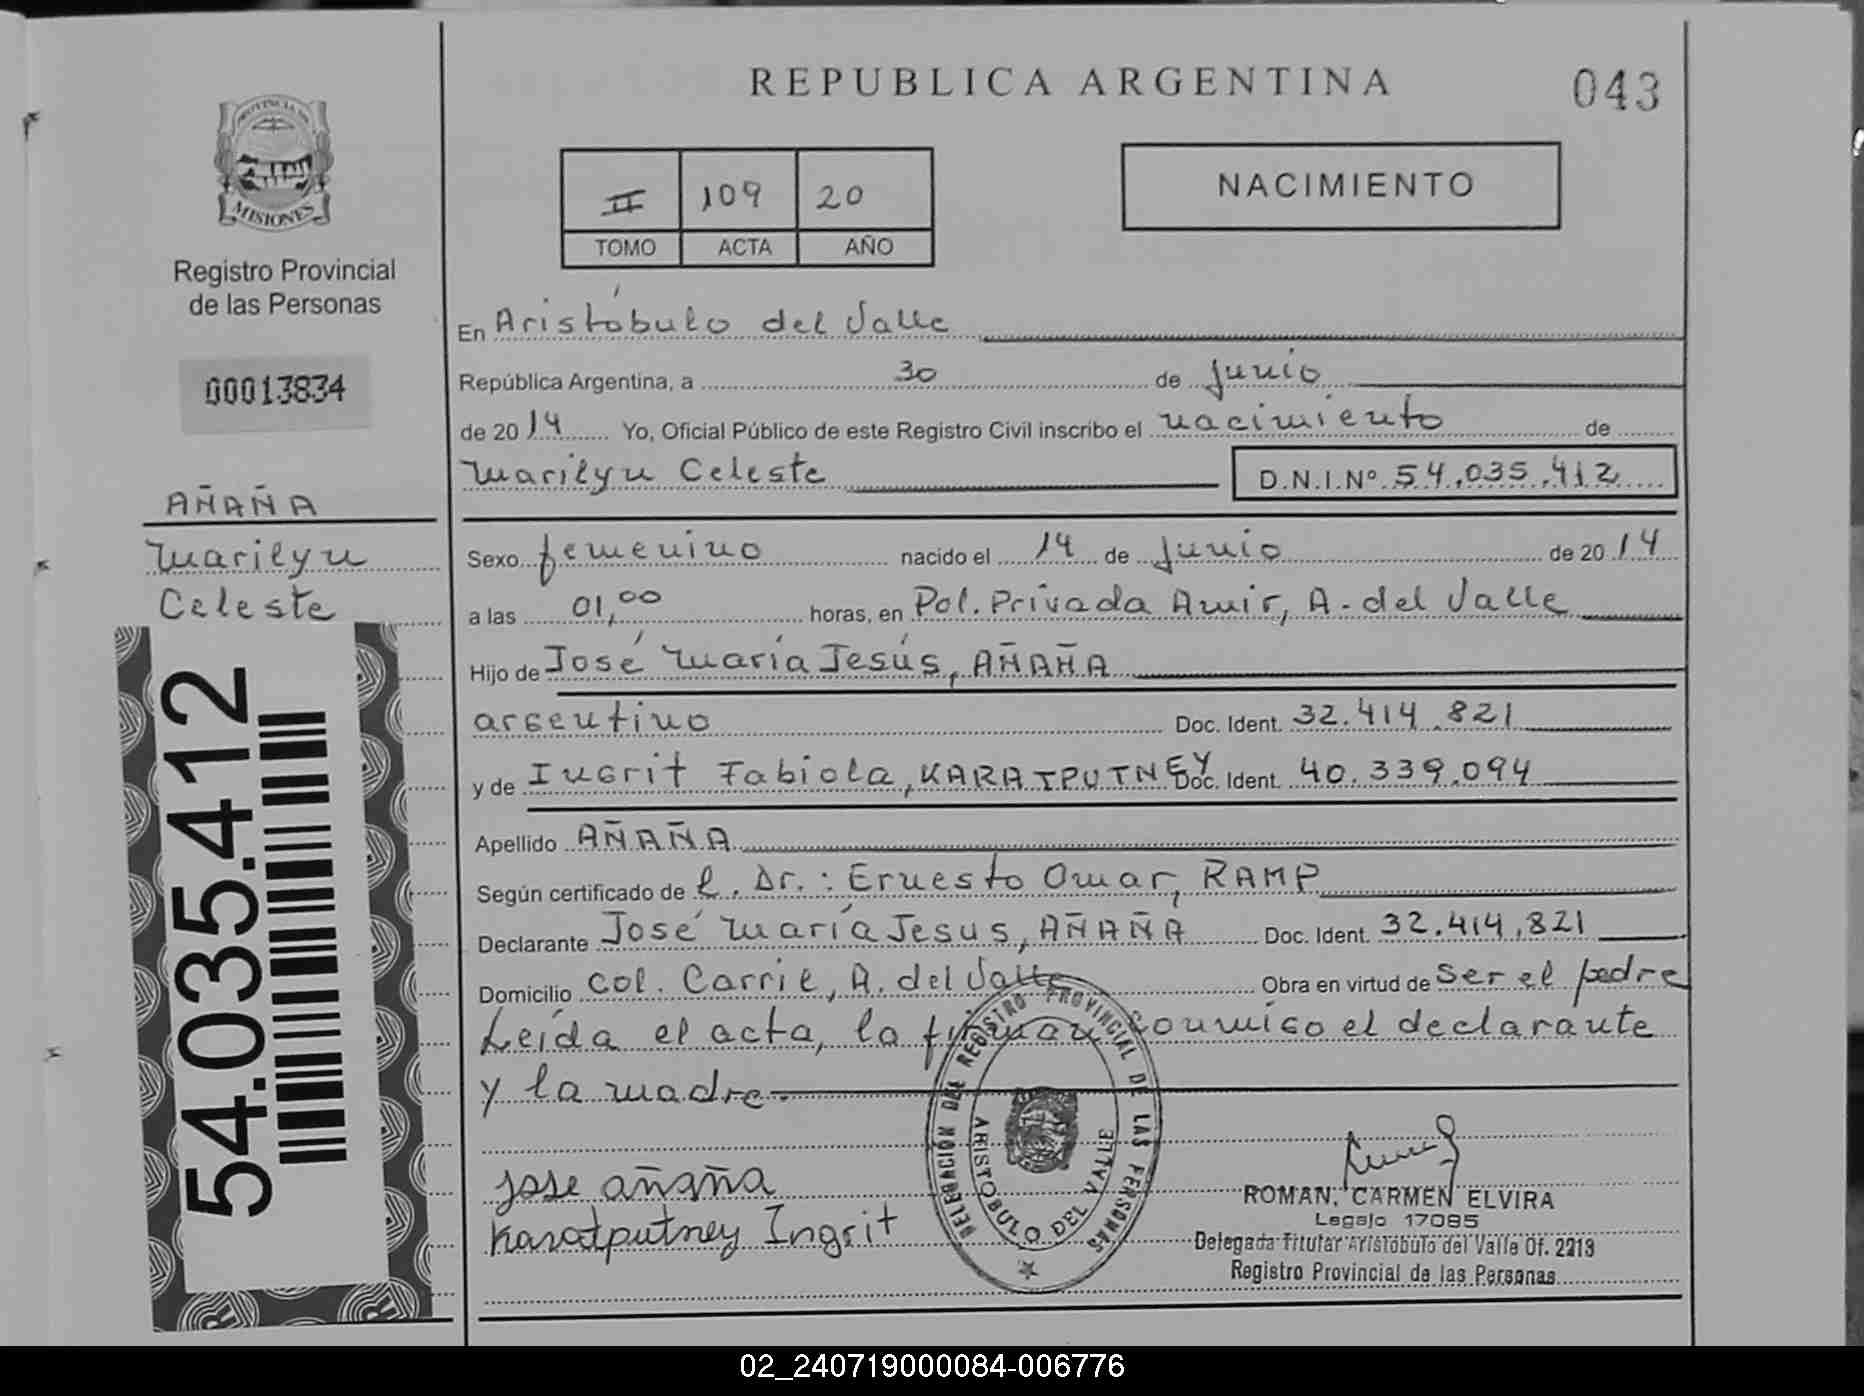 REPUBLICA ARGENTINA
043
PROVINCIA DE
MISIONES
Registro Provincial
de las Personas
00013834
AÑAÑA
Marilyn
Celeste
54.035.412
II 109 20
TOMO ACTA AÑO
NACIMIENTO
En Aristóbulo del Valle
República Argentina, a 30 de junio
de 20 14 Yo, Oficial Público de este Registro Civil inscribo el nacimiento de
Marilyn Celeste D.N.I.Nº 54.035.412
Sexo femenino nacido el 14 de junio de 20 14
a las 01,00 horas, en Pol. Privada Amir, A. del Valle
Hijo de José María Jesús, AÑAÑA
argentino Doc. Ident. 32.414.821
y de Ingrit Fabiola, KARATPUTNEY Doc. Ident. 40.339.094
Apellido AÑAÑA
Según certificado de l. Dr.: Ernesto Omar, RAMP
Declarante José María Jesus, AÑAÑA Doc. Ident. 32.414.821
Domicilio Col. Carril, A. del Valle Obra en virtud de Ser el padre
Leída el acta, la firman conmigo el declarante
y la madre.
jose añaña
Karatputney Ingrit
DELEGACIÓN DEL REGISTRO PROVINCIAL DE LAS PERSONAS
ARISTOBULO DEL VALLE
ROMAN, CARMEN ELVIRA
Legajo 17085
Delegada Titular Aristóbulo del Valle Of. 2213
Registro Provincial de las Personas
02_240719000084-006776